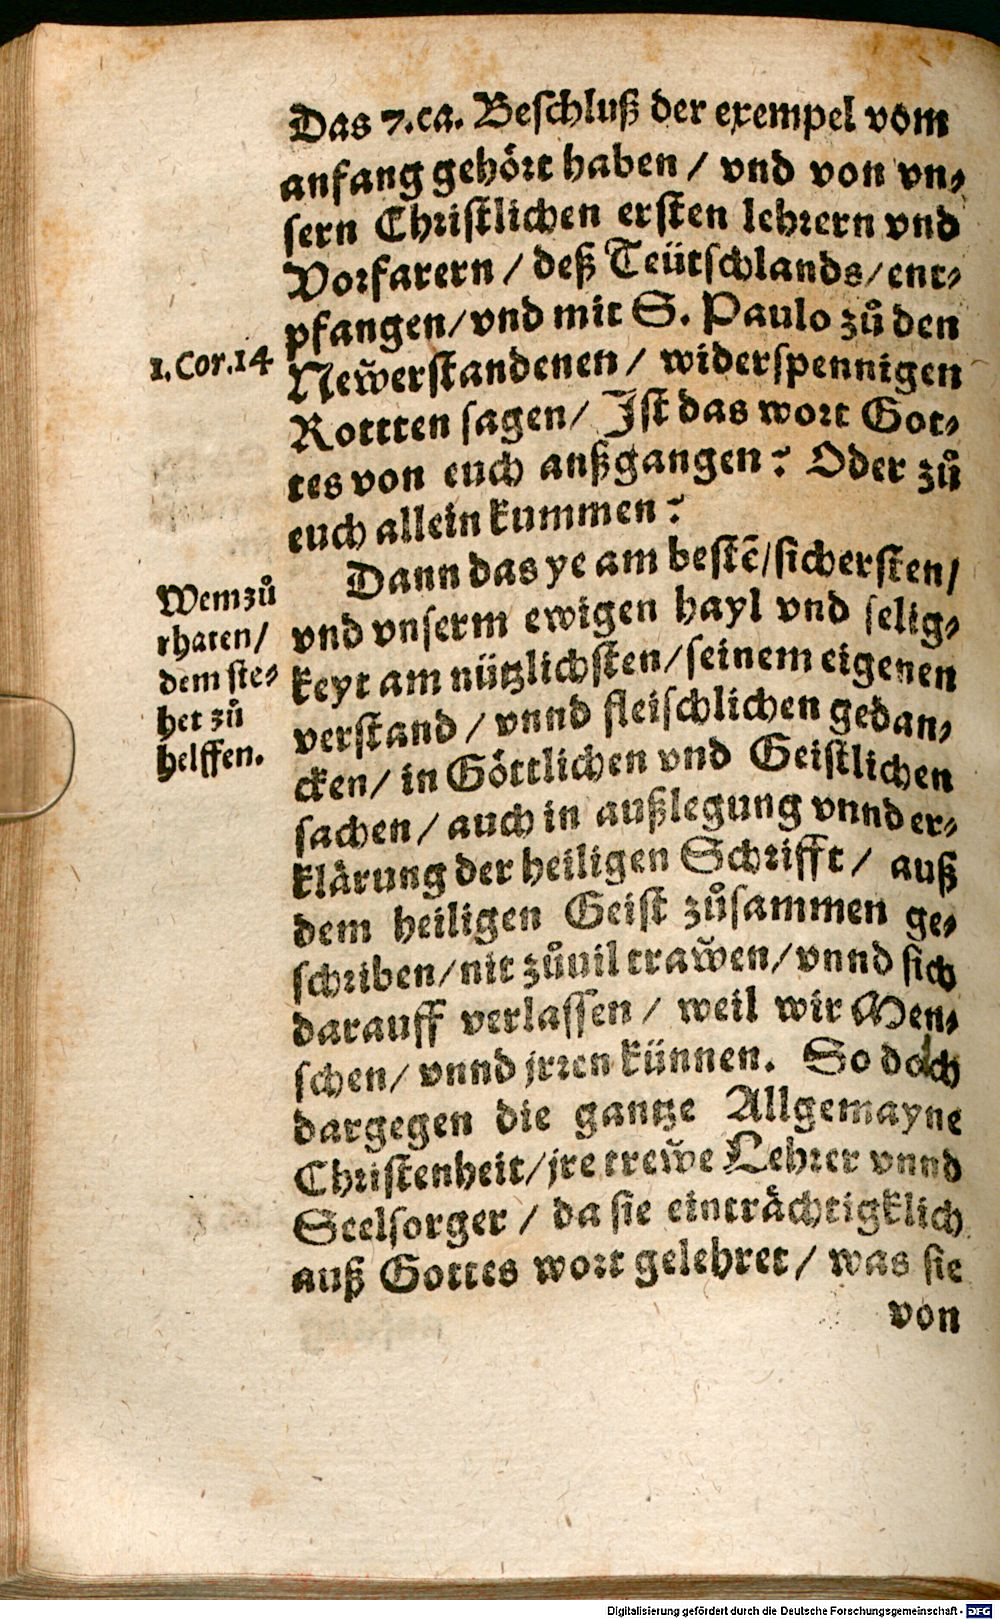 Das 7.ca. Beschluß der exempel vom
anfang gehört haben / vnd von vn⸗
sern Christlichen ersten lehrern vnd
Vorfarern / deß Teütschlands/ ent⸗
pfangen/ vnd mit S. Paulo zů den
1. Cor. 14
New̆erstandenen / widerspennigen
Rottten sagen/ Jst das wort Got⸗
tes von euch außgangen? Oder zů
euch allein kummen?
Dann das ye am bestē/sichersten/
Wem zů
rhaten/
dem ste⸗
het zů
helffen.
vnd vnserm ewigen hayl vnd selig⸗
keyt am nützlichsten/ seinem eigenen
verstand / vnnd fleischlichen gedan⸗
cken/ in Göttlichen vnd Geistlichen
sachen/ auch in außlegung vnnd er⸗
klärung der heiligen Schrifft/ auß
dem heiligen Geist zůsammen ge⸗
schriben/ nit zůuil traw̆en/ vnnd sich
darauff verlassen / weil wir Men⸗
schen/ vnnd jrren künnen. So doch
dargegen die gantze Allgemayne
Christenheit/ jre trew̆e Lehrer vnnd
Seelsorger / da sie einträchtigklich
auß Gottes wort gelehret/ was sie
von
Digitalisierung gefördert durch die Deutsche Forschungsgemeinschaft - DFG